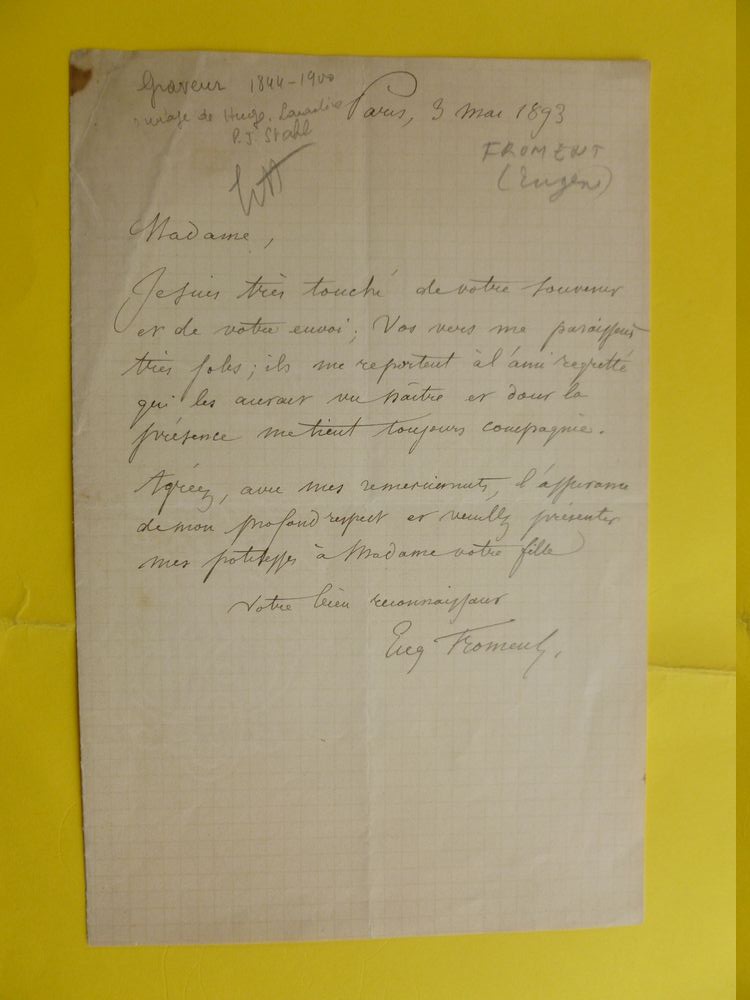 Graveur 1844-1900
ouvrage de Hugo, Lamartine
P. J. Stahl
Paris, 3 mai 1893
FROMENT
(Eugène)
Madame,
Je suis très touché de votre souvenir
et de votre envoi; Vos vers me paraissent
très jolis; ils me reportent à l'ami regretté
qui les aurait vu naître et dont la
présence me tient toujours compagnie.
Agréez, avec mes remerciements, l'assurance
de mon profond respect et veuillez présenter
mes politesses à Madame votre fille
Votre bien reconnaissant
Eug Froment.